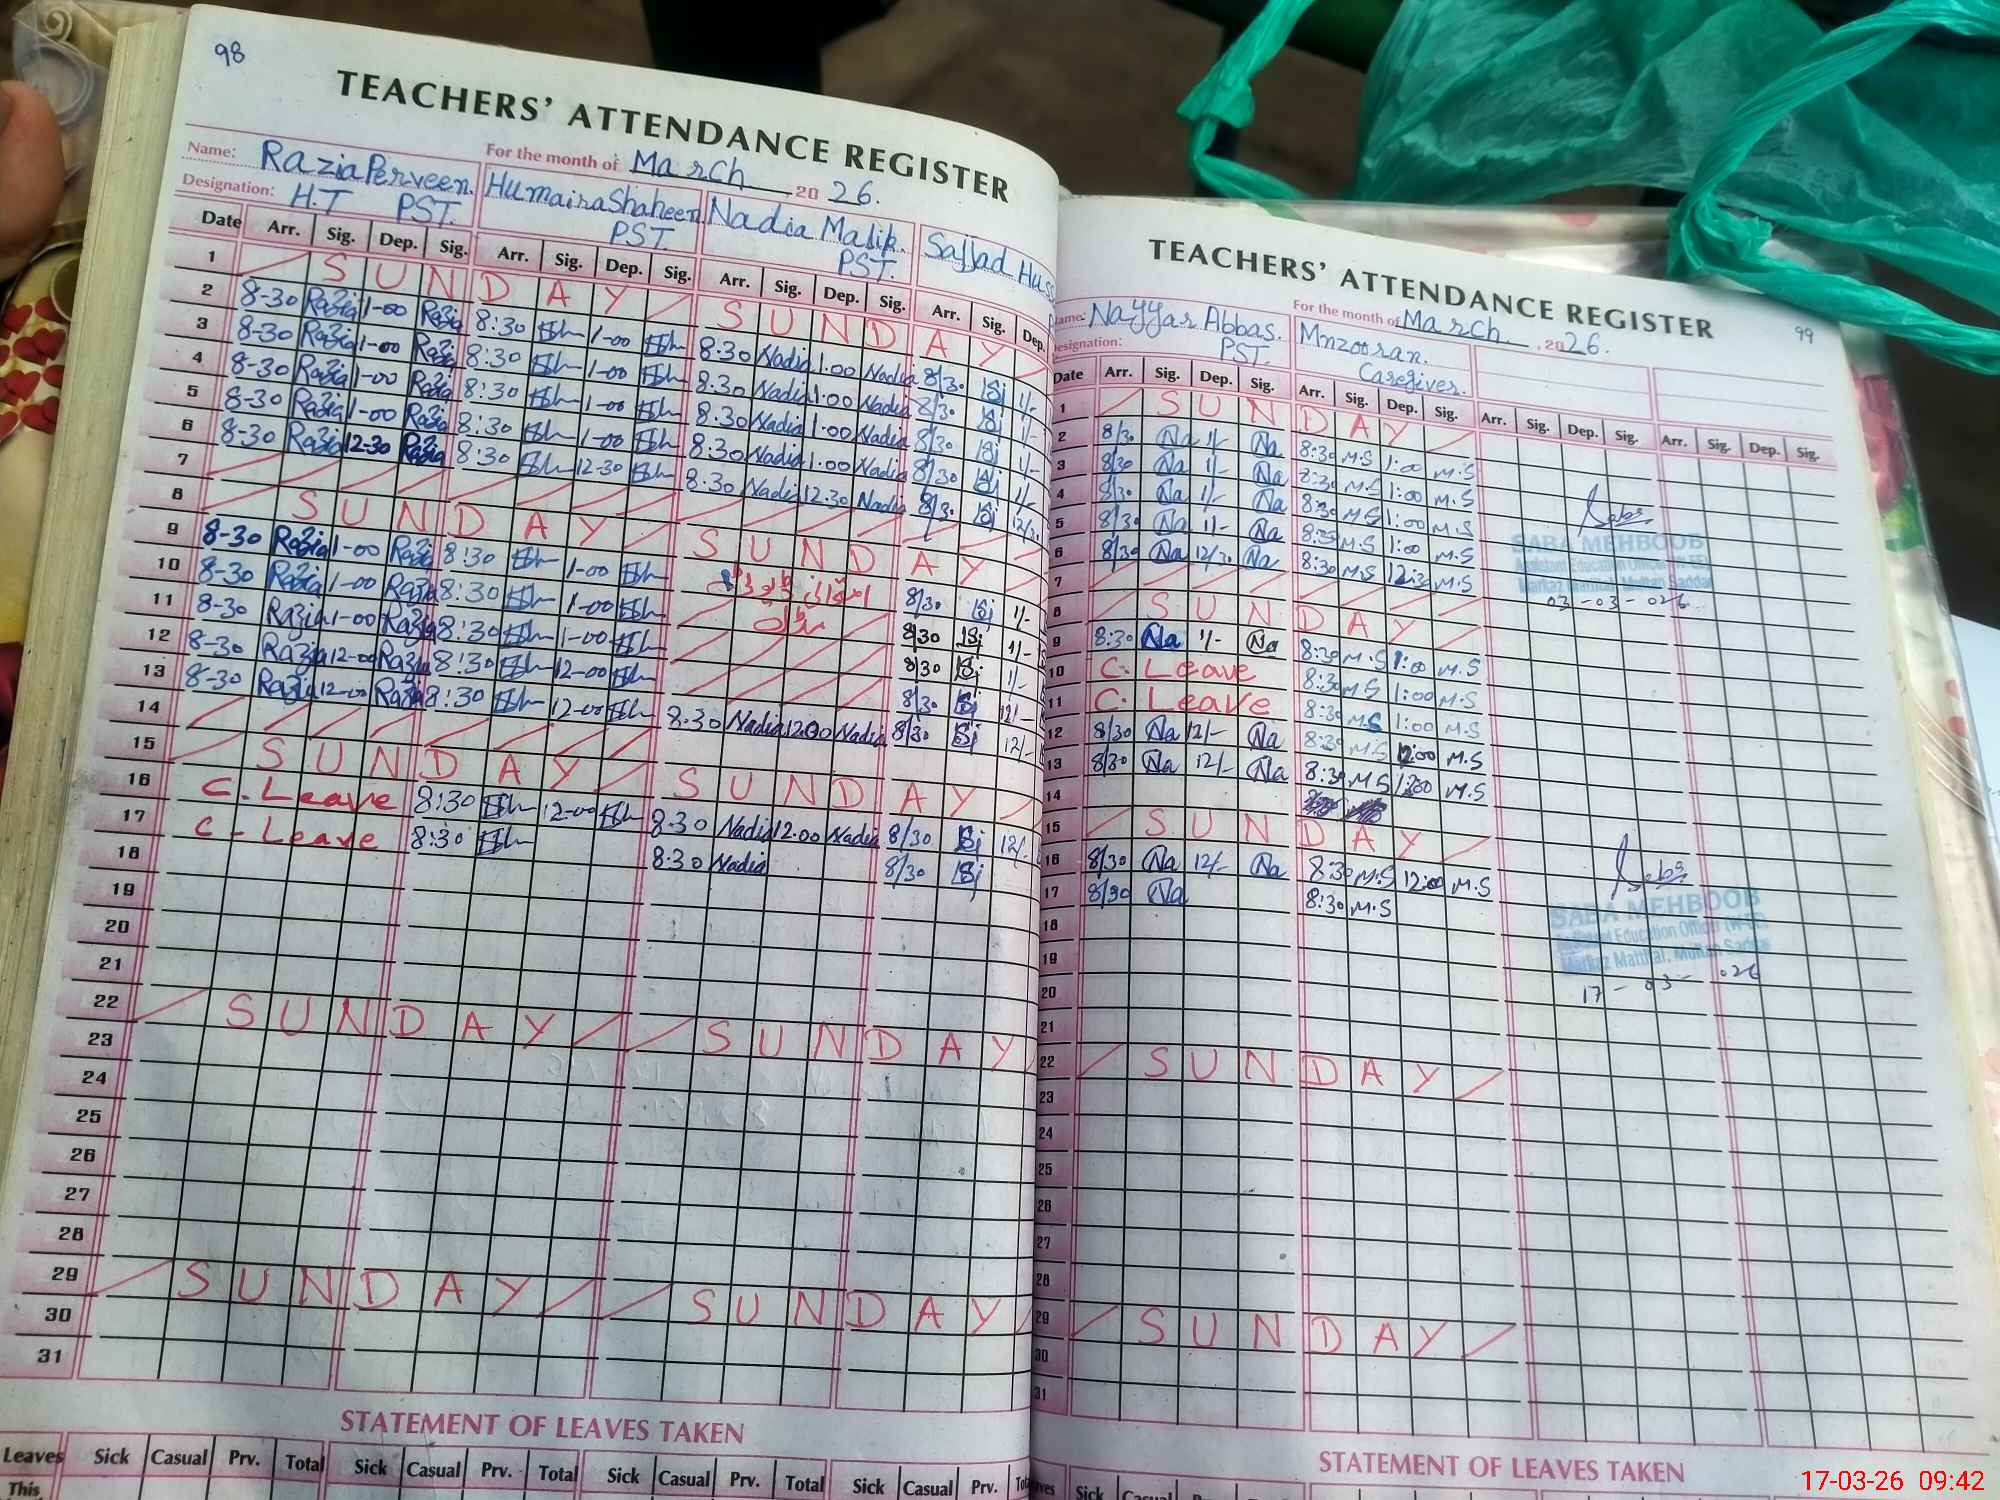 98
TEACHERS' ATTENDANCE REGISTER
Name: Razia Perveen. For the month of March 2026.
Designation: H.T PST. Humaira Shaheen PST. Nadia Malik. PST. Sajjad Huss
Date Arr. Sig. Dep. Sig. Arr. Sig. Dep. Sig. Arr. Sig. Dep. Sig. Arr. Sig. Dep.
1 SUNDAY SUNDAY
2 8-30 Razia 1-00 Razia 8:30 1-00 8.30 Nadia 1.00 Nadia 8/30 Sj 1/-
3 8-30 Razia 1-00 Razia 8:30 1-00 8.30 Nadia 1.00 Nadia 8/30 Sj 1/-
4 8-30 Razia 1-00 Razia 8:30 1-00 8.30 Nadia 1.00 Nadia 8/30 Sj 1/-
5 8-30 Razia 1-00 Razia 8:30 1-00 8:30 Nadia 1.00 Nadia 8/30 Sj 1/-
6 8-30 Razia 12-30 Razia 8:30 12-30 8.30 Nadia 12.30 Nadia 8/30 Sj 12/30
7
8 SUNDAY SUNDAY
9 8-30 Razia 1-00 Razia 8:30 1-00 8/30 Sj 1/-
10 8-30 Razia 1-00 Razia 8:30 1-00 8/30 Sj 1/-
11 8-30 Razia 1-00 Razia 8:30 1-00 8/30 Sj 1/-
12 8-30 Razia 12-00 Razia 8:30 12-00 8/30 Sj 12/-
13 8-30 Razia 12-00 Razia 8:30 12-00 8.30 Nadia 12.00 Nadia 8/30 Sj 12/-
14
15 SUNDAY SUNDAY
16 C. Leave 8:30 12-00 8.30 Nadia 12.00 Nadia 8/30 Sj 12/-
17 C - Leave 8:30 8.30 Nadia 8/30 Sj
18
19
20
21
22 SUNDAY SUNDAY
23
24
25
26
27
28
29 SUNDAY SUNDAY
30
31
STATEMENT OF LEAVES TAKEN
Leaves Sick Casual Prv. Total Sick Casual Prv. Total Sick Casual Prv. Total Sick Casual Prv.
This
TEACHERS' ATTENDANCE REGISTER
99
Nayyar Abbas. For the month of March 2026.
Designation: PST. Mnzooran. Caregiver.
Date Arr. Sig. Dep. Sig. Arr. Sig. Dep. Sig. Arr. Sig. Dep. Sig. Arr. Sig. Dep. Sig.
1 SUNDAY
2 8/30 Na 1/- Na 8:30 M.S 1:00 M.S
3 8/30 Na 1/- Na 8:30 M.S 1:00 M.S
4 8/30 Na 1/- Na 8:30 M.S 1:00 M.S
5 8/30 Na 1/- Na 8:30 M.S 1:00 M.S
6 8/30 Na 12/30 Na 8:30 M.S 12:30 M.S
7
8 SUNDAY
9 8:30 Na 1/- Na 8:30 M.S 1:00 M.S
10 C. Leave 8:30 M.S 1:00 M.S
11 C. Leave 8:30 M.S 1:00 M.S
12 8/30 Na 12/- Na 8:30 M.S 12:00 M.S
13 8/30 Na 12/- Na 8:30 M.S M.S
14
15 SUNDAY
16 8/30 Na 12/- Na 8:30 M.S 12:00 M.S
17 8/30 Na 8:30 M.S
18
19
20
21
22 SUNDAY
23
24
25
26
27
28
29 SUNDAY
30
31
Saba
SABA MEHBOOB
Assistant Education Officer (W-EE)
Markaz Matithal, Multan Saddar
03-03-026
Saba
SABA MEHBOOB
Assistant Education Officer (W-EE)
Markaz Matithal, Multan Saddar
17-03-026
STATEMENT OF LEAVES TAKEN
Sick Casual
17-03-26 09:42